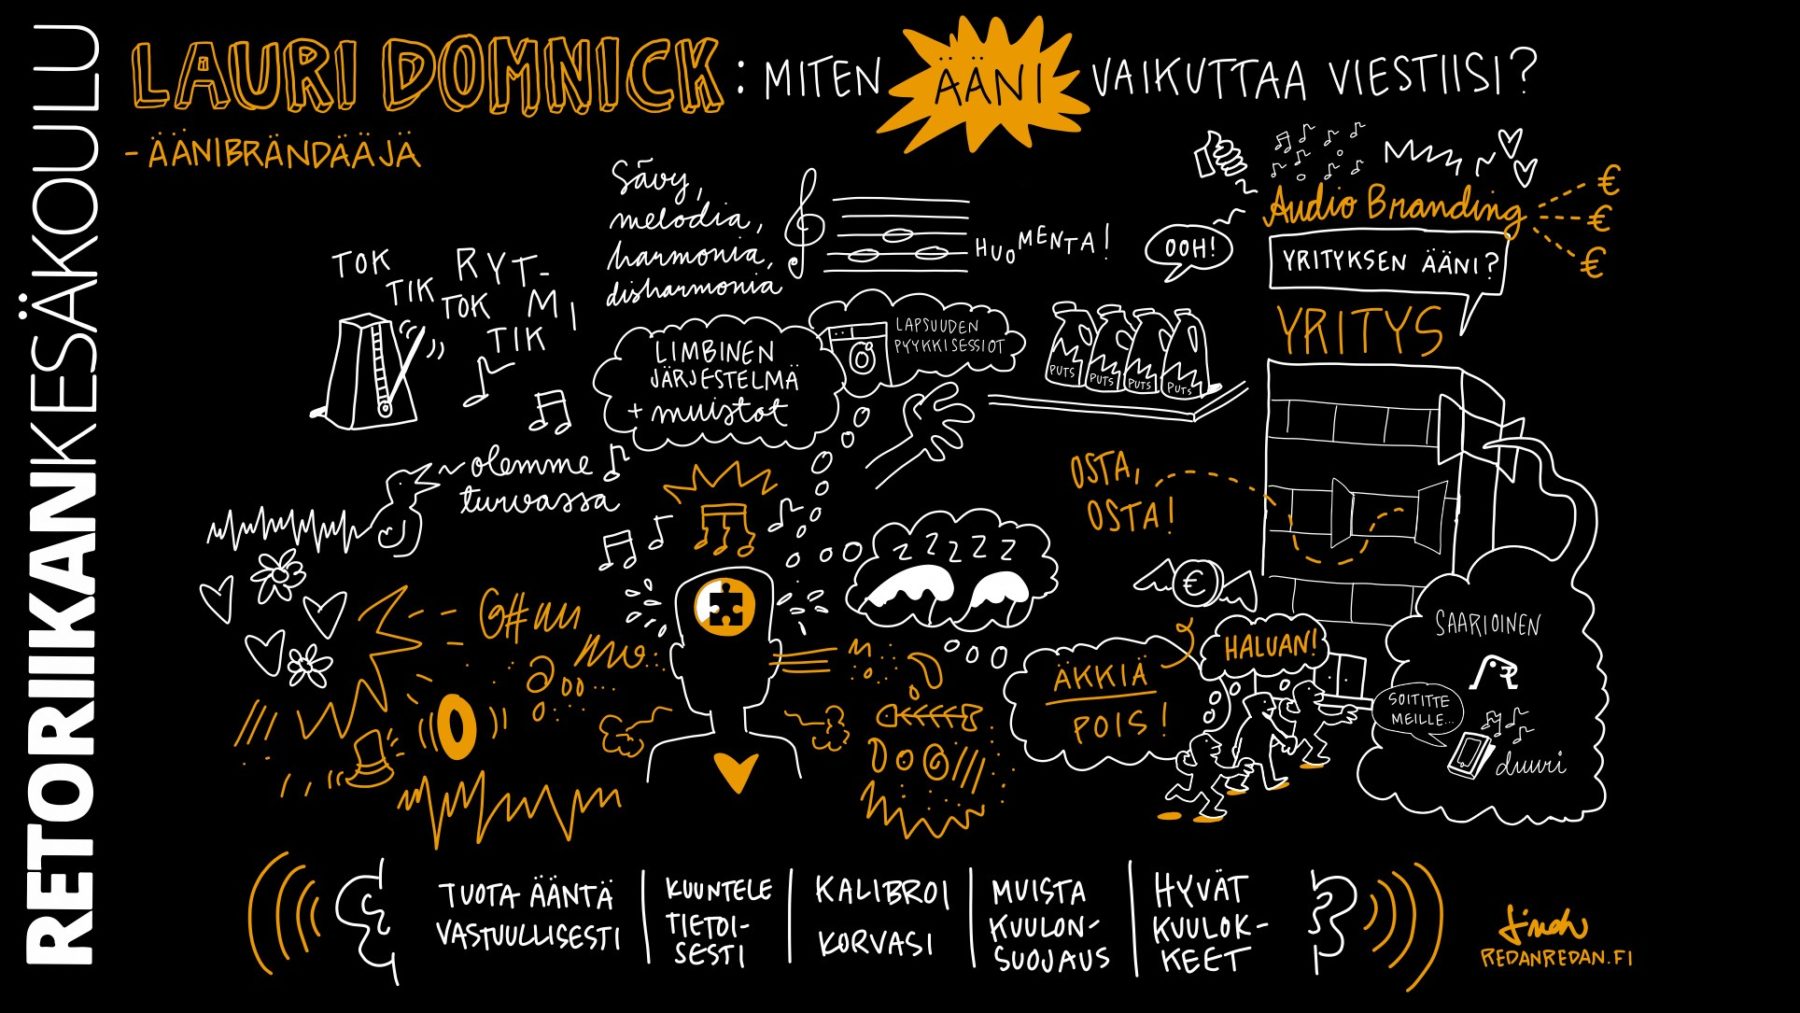 RETORIIKANKESÄKOULU
LAURI DOMNICK: MITEN ÄÄNI VAIKUTTAA VIESTIISI?
- ÄÄNIBRÄNDÄÄJÄ
TOK
TIK
TOK
TIK
RYT-
MI
Sävy,
melodia,
harmonia,
disharmonia
HUOMENTA!
OOH!
Audio Branding
€
€
€
YRITYKSEN ÄÄNI?
YRITYS
LIMBINEN
JÄRJESTELMÄ
+ muistot
LAPSUUDEN
PYYKKISESSIOT
PUTS
PUTS
PUTS
PUTS
~olemme
turvassa
OSTA,
OSTA!
ZZZZZ
€
G#
ÄKKIÄ
POIS!
HALUAN!
SAARIOINEN
SOITITTE
MEILLE...
duuri
TUOTA ÄÄNTÄ
VASTUULLISESTI
KUUNTELE
TIETOI-
SESTI
KALIBROI
KORVASI
MUISTA
KUULON-
SUOJAUS
HYVÄT
KUULOK-
KEET
REDANREDAN.FI